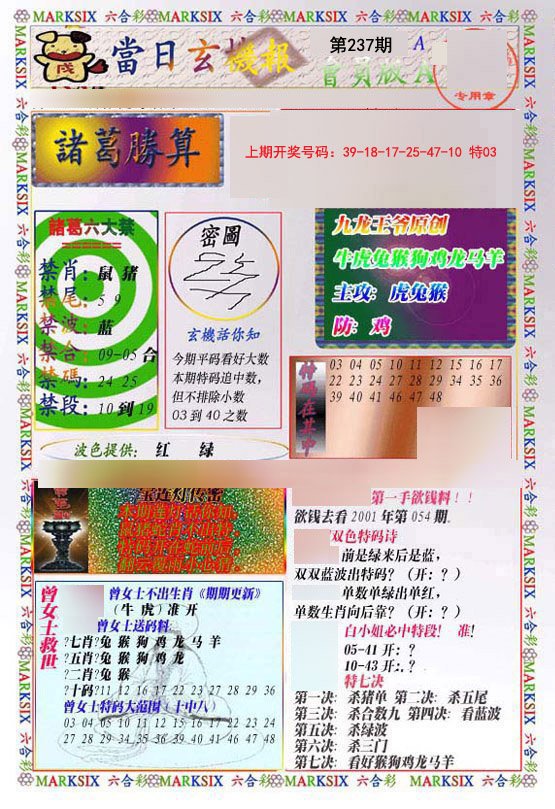 MARKSIX 六合彩 MARKSIX 六合彩 MARKSIX 六合彩 MARKSIX 六合彩
當日玄機報
第237期
A
會員版A
专用章
諸葛勝算
上期开奖号码：39-18-17-25-47-10 特03
諸葛六大禁
禁肖：鼠 猪
禁尾：5 9
禁波：蓝
禁合：09-05 合
禁碼：24 25
禁段：10 到 19
密圖
玄機話你知
今期平码看好大数
本期特码追中数，
但不排除小数
03 到 40 之数
九龙王爷原创
牛虎兔猴狗鸡龙马羊
主攻：虎兔猴
防：鸡
特码在其中
03 04 05 10 11 12 15 16 17
22 23 24 27 28 29 34 35 36
39 40 41 46 47 48
波色提供： 红 绿
宝莲灯传密
曾女士救世
曾女士不出生肖《期期更新》
（牛 虎）准 开
曾女士送码料
?七肖?兔 猴 狗 鸡 龙 马 羊
?五肖?兔 猴 狗 鸡 龙
?二肖?兔 猴
?十码?11 12 16 17 22 23 27 28 29 36
曾女士特码大范围（十中八）
03 04 05 10 11 12 15 16 17 22 23 24
27 28 29 34 35 36 39 40 41 46 47 48
第一手欲钱料！！
欲钱去看 2001 年第 054 期.
双色特码诗
前是绿来后是蓝，
双双蓝波出特码？（开：？）
单数单绿出单红，
单数生肖向后靠？（开：？）
白小姐必中特段！ 准！
05-41 开：？
10-43 开：？
特七决
第一决：杀猪单 第二决：杀五尾
第三决：杀合数九 第四决：看蓝波
第五决：杀绿波
第六决：杀三门
第七决：看好猴狗鸡龙马羊
MARKSIX 六合彩 MARKSIX 六合彩 MARKSIX 六合彩 MARKSIX 六合彩